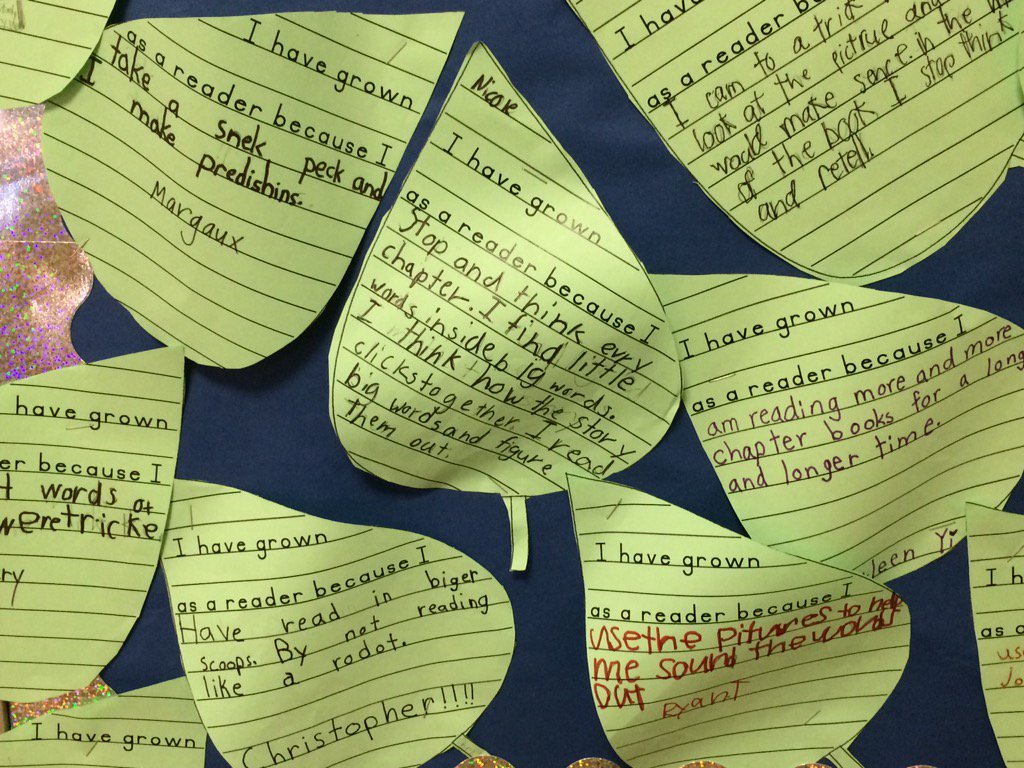 I have grown
as a reader because I
take a snek peck and
I make predishins.
Margaux
Nicole
I have grown
as a reader because I
Stop and think evry
chapter. I find little
words inside big words.
I think how the story
clicks together. I read
big words and figure
them out.
I have
as a reader be
I cam to a trick
look at the pictrue and
would make sence. in the
of the book I stop think
and retell.
I have grown
as a reader because I
am reading more and more
chapter books for a long
and longer time.
leen Yi
have grown
er because I
words at
weretricke
ry
I have grown
as a reader because I
Have read in biger
scoops. By not reading
like a rodot.
Christopher!!!!
I have grown
as a reader because I
use the pitures to help
me sound the word
out
Ryan T
I h
as a
us
jo
I have grown